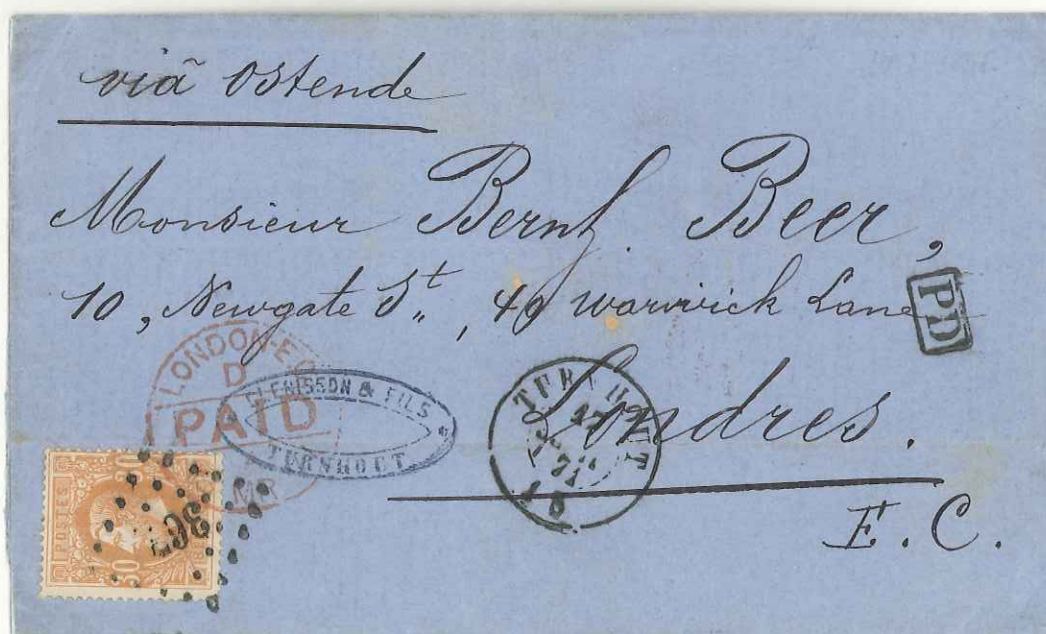 viâ Ostende
Monsieur Bernh. Beer,
10, Newgate St., 49 Warwick Lane
PD
Londres.
E. C.
LONDON-E.C
D
PAID
MR
GLENISSON & FILS
TURNHOUT
TURNHOUT
17
71
367
POSTES
30
30